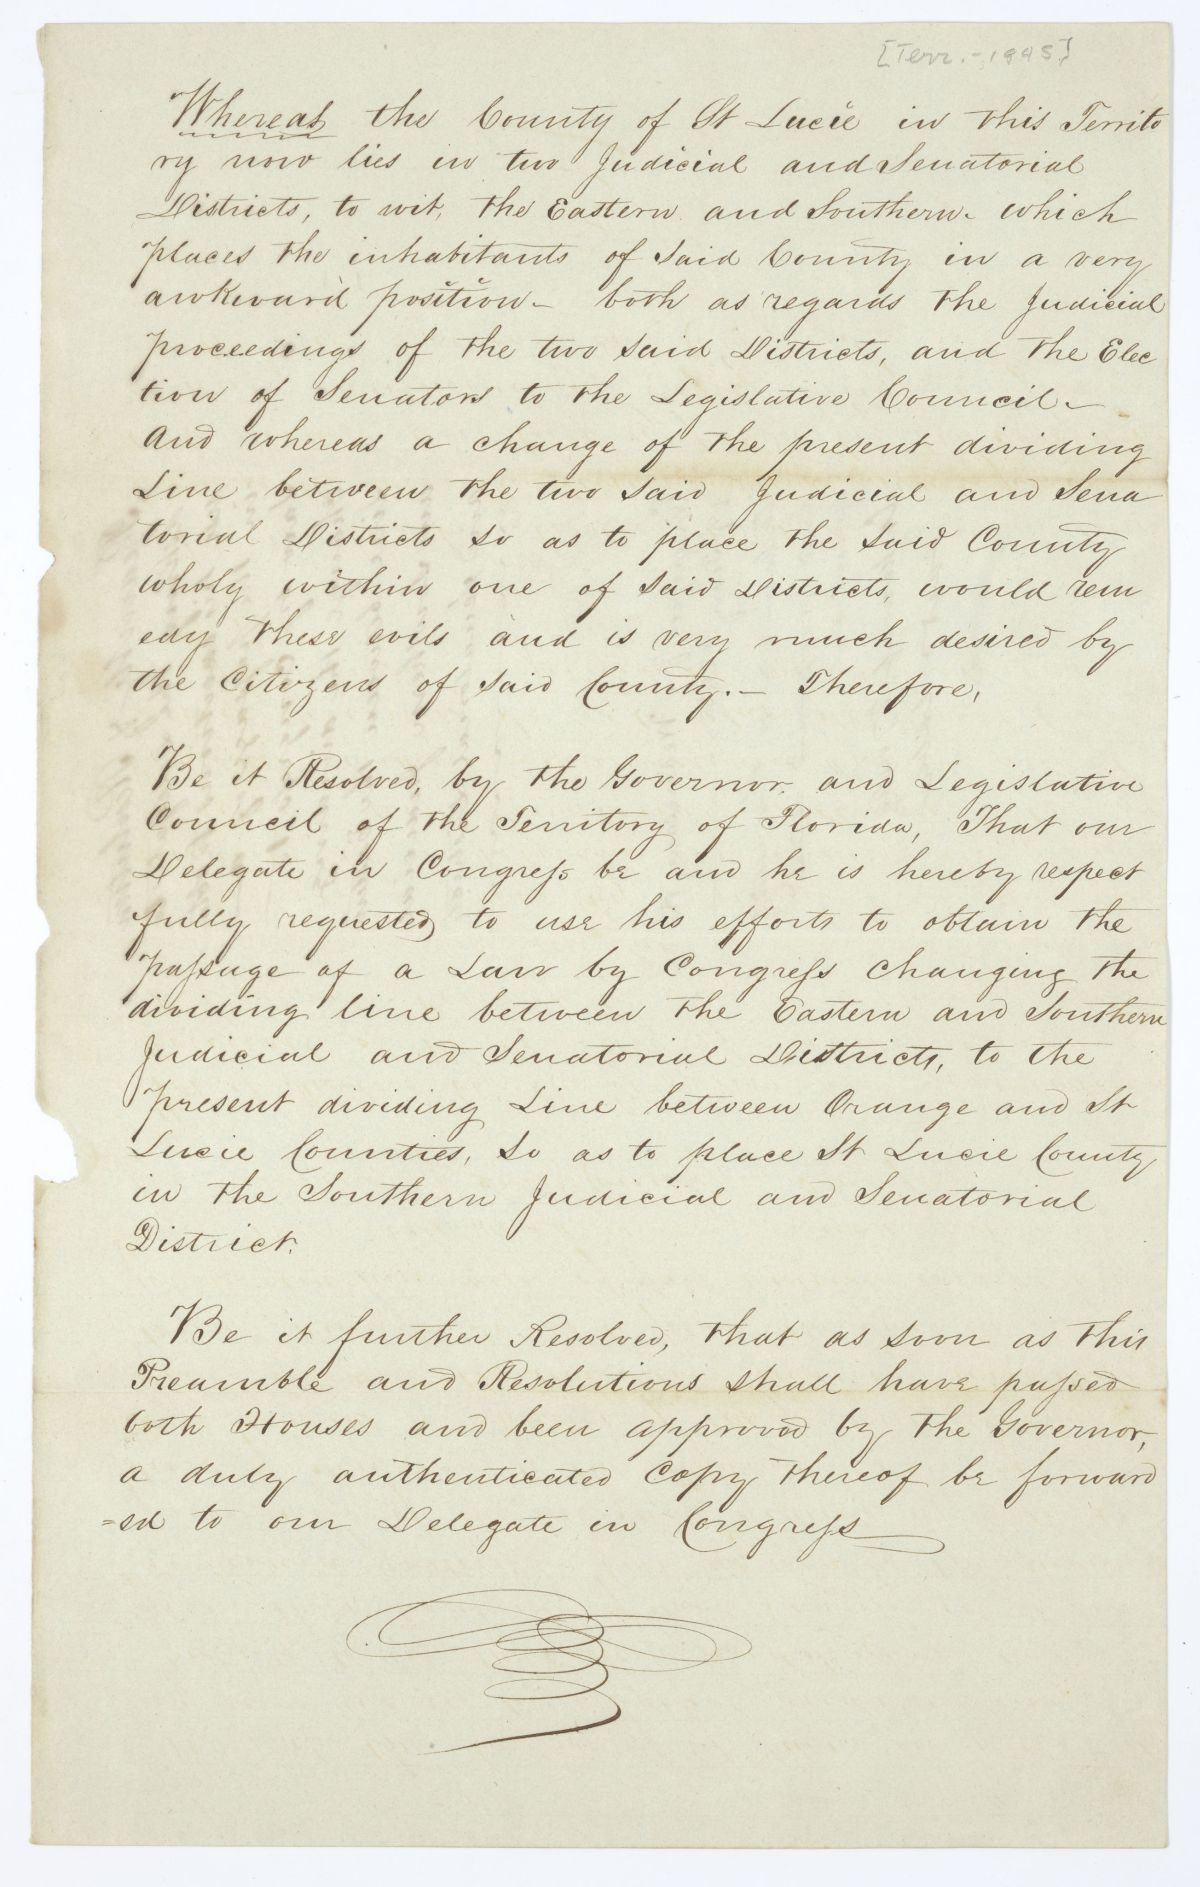 [Terr. - 1845]
Whereas the County of St Lucie in this Territo
ry now lies in two Judicial and Senatorial
Districts, to wit, the Eastern and Southern - which
places the inhabitants of said County in a very
awkward position - both as regards the Judicial
proceedings of the two said Districts, and the Elec
tion of Senators to the Legislative Council -
And whereas a change of the present dividing
Line between the two said Judicial and Sena
torial Districts so as to place the said County
wholy within one of said Districts, would rem
edy these evils and is very much desired by
the Citizens of said County. - Therefore,
Be it Resolved, by the Governor and Legislative
Council of the Territory of Florida, That our
Delegate in Congress be and he is hereby respect
fully requested to use his efforts to obtain the
passage of a Law by Congress changing the
dividing line between the Eastern and Southern
Judicial and Senatorial Districts, to the
present dividing Line between Orange and St
Lucie Counties, so as to place St Lucie County
in the Southern Judicial and Senatorial
District.
Be it further Resolved, that as soon as this
Preamble and Resolutions shall have passed
both Houses and been approved by the Governor,
a duly authenticated Copy thereof be forward
=ed to our Delegate in Congress